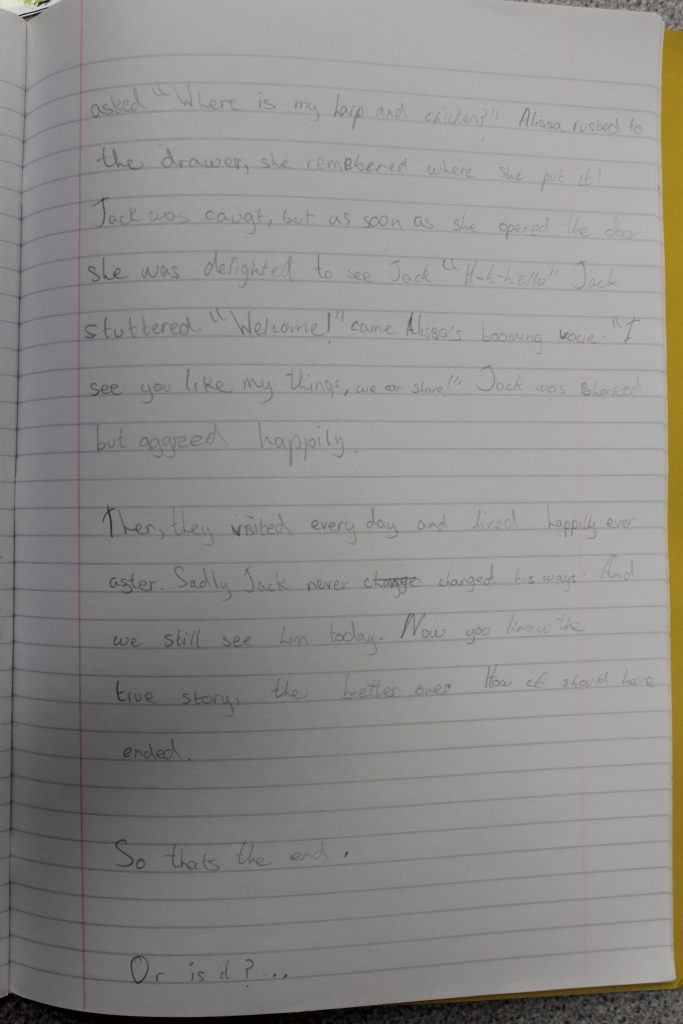 asked "Where is my harp and chicken?" Alissa rushed to
the drawer, she remebered where she put it!
Jack was caugt, but as soon as she opened the door
she was delighted to see Jack "H-h-hello" Jack
stuttered. "Welcome!" came Alissa's booming vocie. "I
see you like my things, we can share!" Jack was shocked
but aggreed happily.
Then, they visited every day and lived happily ever
aster. Sadly Jack never change changed his ways. And
we still see him today. Now you know the
true story, the better one. How it should have
ended.
So thats the end.
Or is it?...